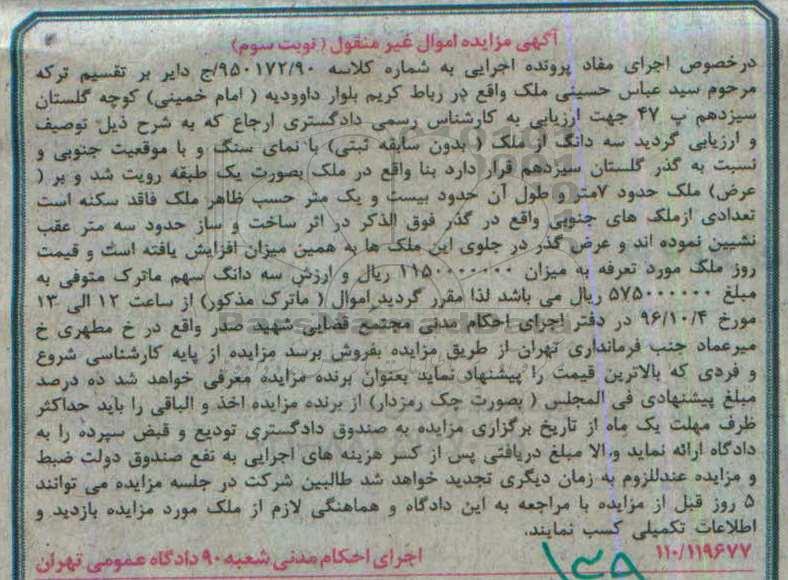 آگهی مزایده اموال غیر منقول (نوبت سوم)
درخصوص اجرای مفاد پرونده اجرایی به شماره کلاسه ۹۵۰۱۷۲/۹۰/ج دایر بر تقسیم ترکه
مرحوم سید عباس حسینی ملک واقع در رباط کریم بلوار داوودیه ( امام خمینی) کوچه گلستان
سیزدهم پ ۴۷ جهت ارزیابی به کارشناس رسمی دادگستری ارجاع که به شرح ذیل توصیف
و ارزیابی گردید سه دانگ از ملک ( بدون سابقه ثبتی) با نمای سنگ و با موقعیت جنوبی و
نسبت به گذر گلستان سیزدهم قرار دارد بنا واقع در ملک بصورت یک طبقه رویت شد و بر (
عرض) ملک حدود ۷متر و طول آن حدود بیست و یک متر حسب ظاهر ملک فاقد سکنه است
تعدادی ازملک های جنوبی واقع در گذر فوق الذکر در اثر ساخت و ساز حدود سه متر عقب
نشیین نموده اند و عرض گذر در جلوی این ملک ها به همین میزان افزایش یافته است و قیمت
روز ملک مورد تعرفه به میزان ۱۱۵۰۰۰۰۰۰۰ ریال و ارزش سه دانگ سهم ماترک متوفی به
مبلغ ۵۷۵۰۰۰۰۰۰ ریال می باشد لذا مقرر گردید اموال ( ماترک مذکور) از ساعت ۱۲ الی ۱۳
مورخ ۹۶/۱۰/۴ در دفتر اجرای احکام مدنی مجتمع قضایی شهید صدر واقع در خ مطهری خ
میرعماد جنب فرمانداری تهران از طریق مزایده بفروش برسد مزایده از پایه کارشناسی شروع
و فردی که بالاترین قیمت را پیشنهاد نماید بعنوان برنده مزایده معرفی خواهد شد ده درصد
مبلغ پیشنهادی فی المجلس ( بصورت چک رمزدار) از برنده مزایده اخذ و الباقی را باید حداکثر
ظرف مهلت یک ماه از تاریخ برگزاری مزایده به صندوق دادگستری تودیع و قبض سپرده را به
دادگاه ارائه نماید و الا مبلغ دریافتی پس از کسر هزینه های اجرایی به نفع صندوق دولت ضبط
و مزایده عندللزوم به زمان دیگری تجدید خواهد شد طالبین شرکت در جلسه مزایده می توانند
۵ روز قبل از مزایده با مراجعه به این دادگاه و هماهنگی لازم از ملک مورد مزایده بازدید و
اطلاعات تکمیلی کسب نمایند.
۱۱۰/۱۱۹۶۷۷ اجرای احکام مدنی شعبه ۹۰ دادگاه عمومی تهران